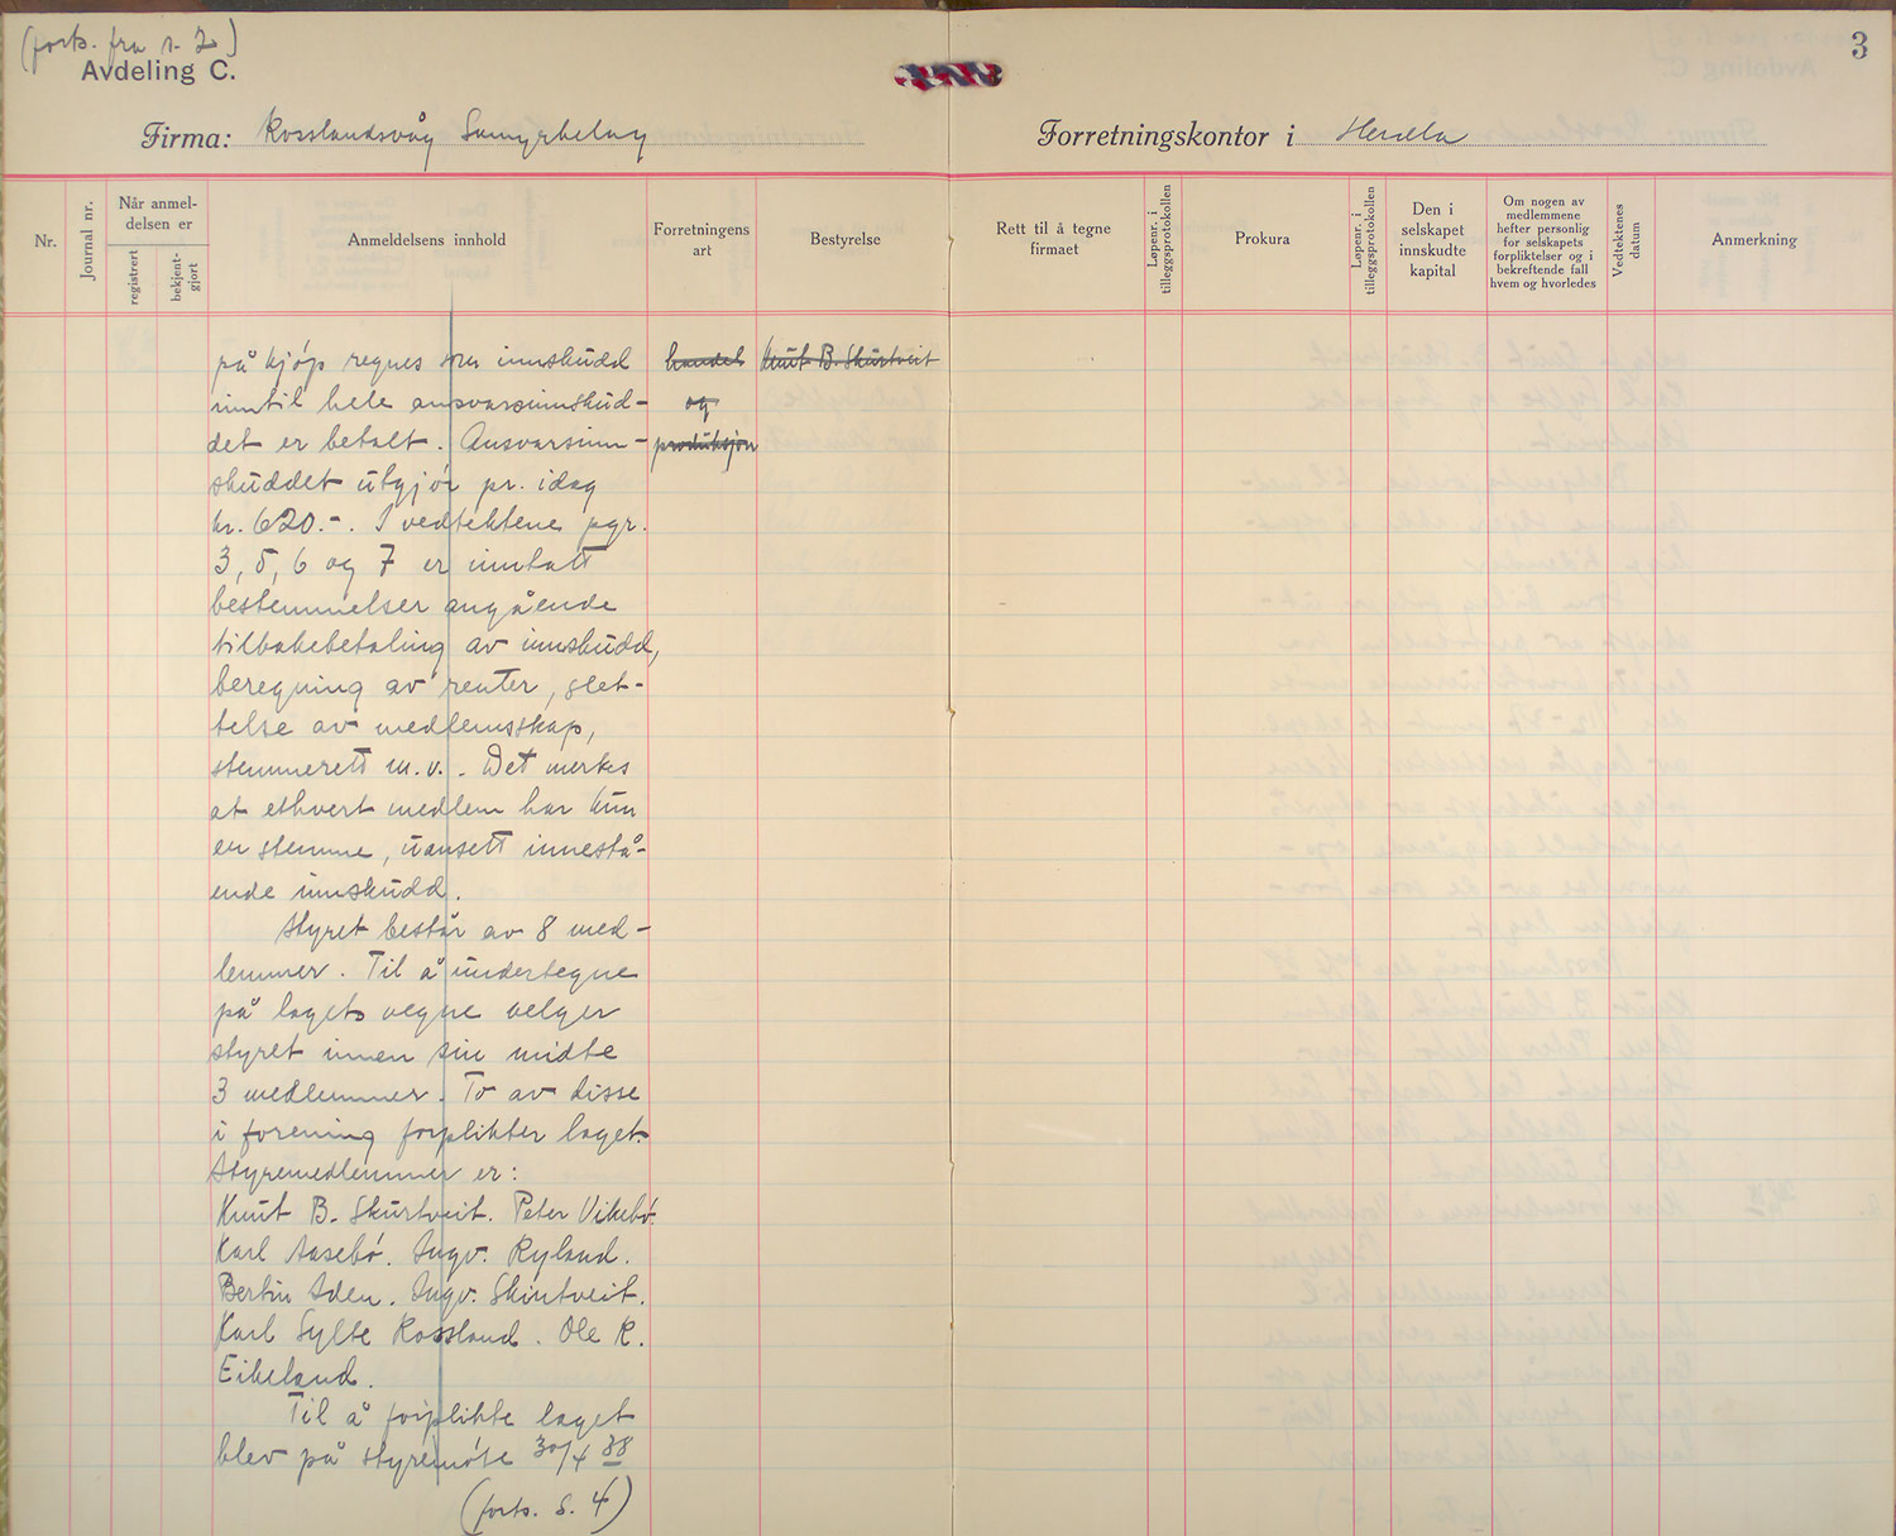 (forts. fra s. 2)
3
Avdeling C.
Firma: Rosslandsvåg Samyrkelag
Forretningskontor i Herdla
Nr.
Journal nr.
Når anmel-
delsen er
registrert
bekjent-
gjort
Anmeldelsens innhold
Forretningens
art
Bestyrelse
Rett til å tegne
firmaet
Løpenr. i
tilleggsprotokollen
Prokura
Løpenr. i
tilleggsprotokollen
Den i
selskapet
innskudte
kapital
Om nogen av
medlemmene
hefter personlig
for selskapets
forpliktelser og i
bekreftende fall
hvem og hvorledes
Vedtektenes
datum
Anmerkning
på kjøp regnes som innskudd
inntil hele ansvarsinnskud-
det er betalt. Ansvarsinn-
skuddet utgjør pr. idag
kr. 620.-. I vedtektene pgr.
3, 5, 6 og 7 er inntatt
bestemmelser angående
tilbakebetaling av innskudd,
beregning av renter, slet-
telse av medlemsskap,
stemmerett m.v.. Det merkes
at ethvert medlem har kun
en stemme, uansett innestå-
ende innskudd.
Styret består av 8 med-
lemmer. Til å undertegne
på lagets vegne velger
styret innen sin midte
3 medlemmer. To av disse
i forening forplikter laget.
Styremedlemmer er:
Knut B. Skurtveit. Peter Vikebø.
Karl Aasebø. Ingv. Ryland.
Bertin Aden. Ingv. Skurtveit.
Karl Sylte Rossland. Ole R.
Eikeland.
Til å forplikte laget
blev på styremøte 30/4 38
(forts. s. 4)
handel
og
produksjon
Knut B. Skurtveit